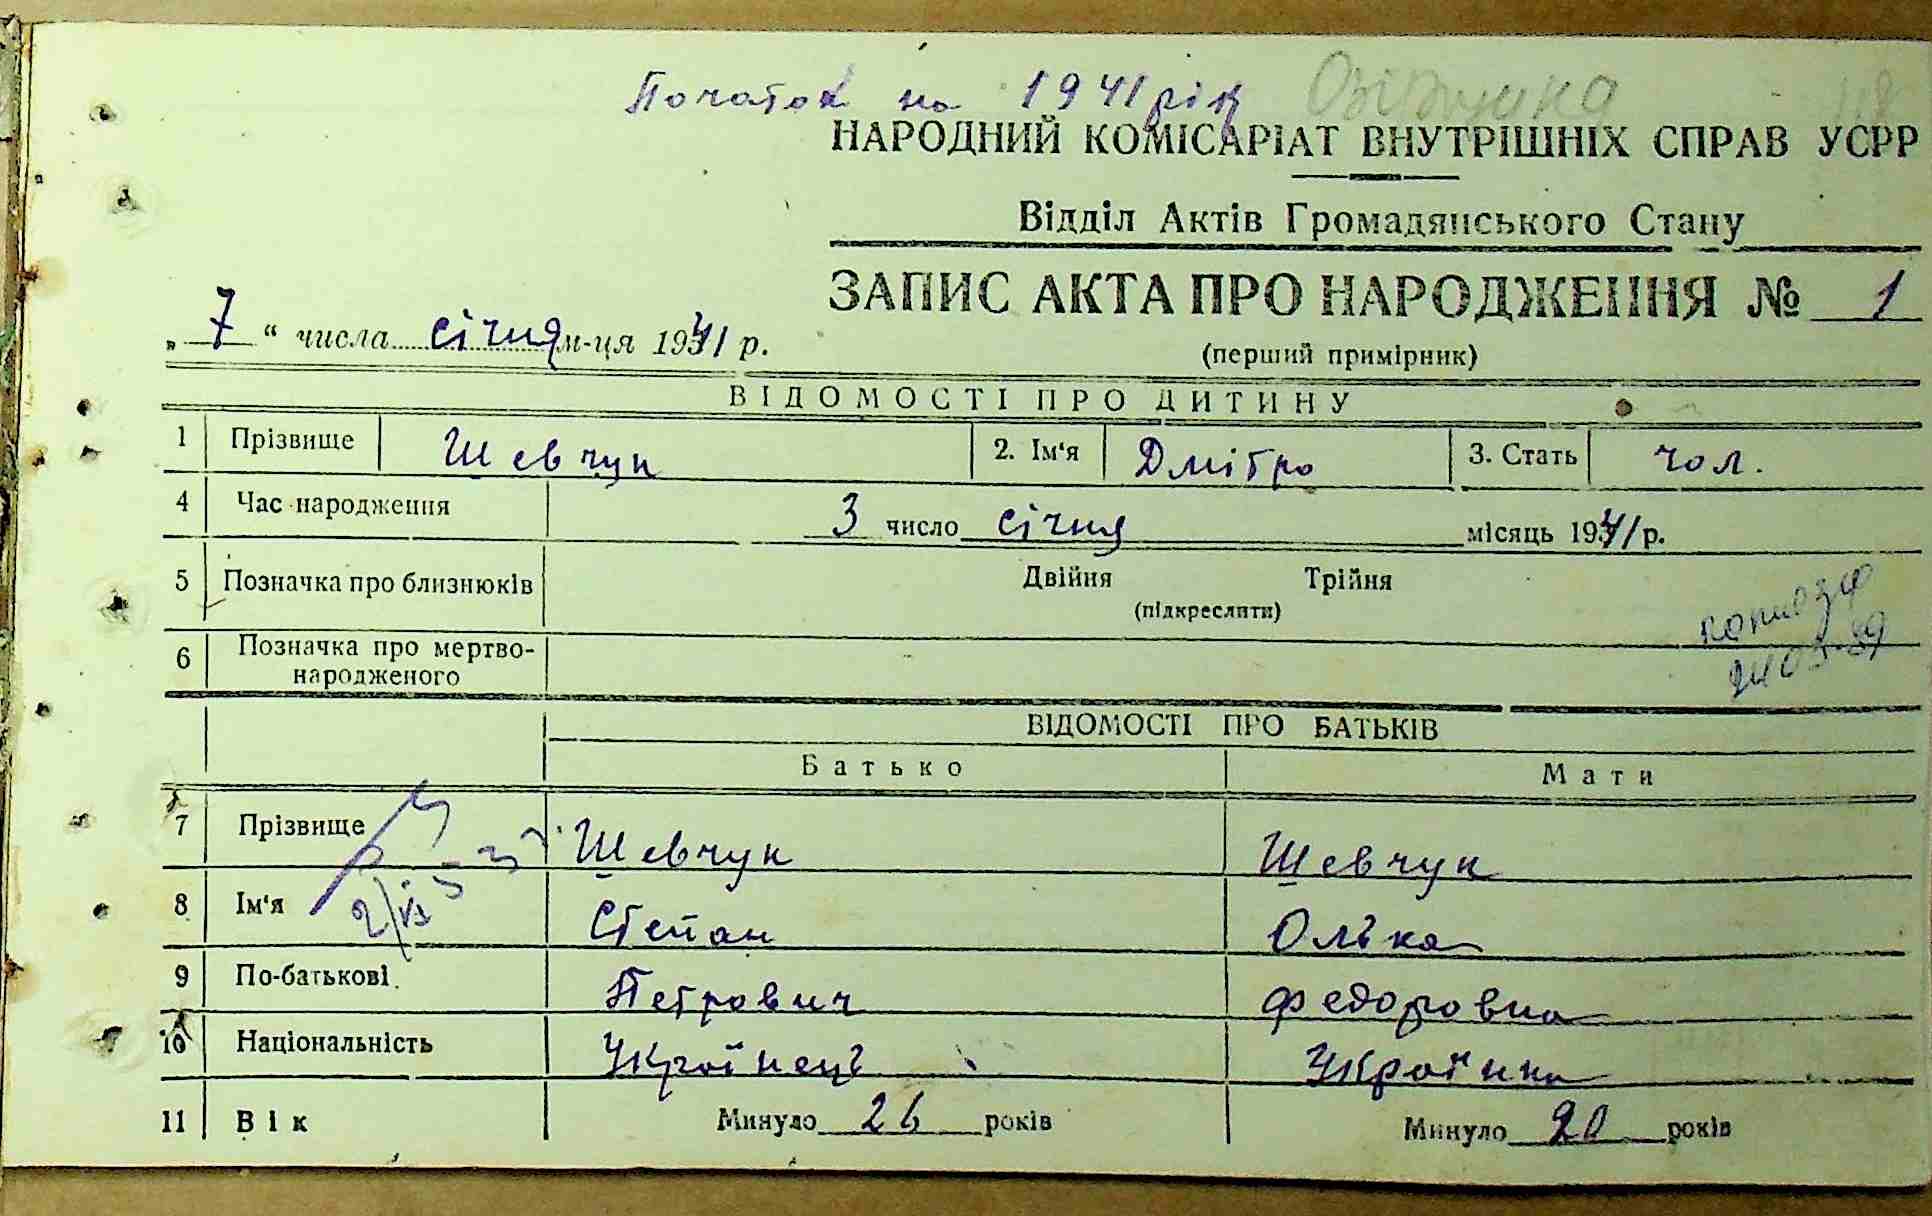 Початок на 1941 рік
НАРОДНИЙ КОМІСАРІАТ ВНУТРІШНІХ СПРАВ УСРР
Відділ Актів Громадянського Стану
ЗАПИС АКТА ПРО НАРОДЖЕННЯ № 1
„ 7 “ числа січня м-ця 1941 р.
(перший примірник)
ВІДОМОСТІ ПРО ДИТИНУ
1 Прізвище Шевчук 2. Ім‘я Дмітро 3. Стать чол.
4 Час народження 3 число січня місяць 1941 р.
5 Позначка про близнюків Двійня Трійня
(підкреслити)
6 Позначка про мертво-
народженого
24 03-89
ВІДОМОСТІ ПРО БАТЬКІВ
Батько Мати
7 Прізвище Шевчук Шевчук
8 Ім‘я Степан Олька
9 По-батькові Петрович Федоровна
10 Національність Українець Українка
11 Вік Минуло 26 років Минуло 20 років